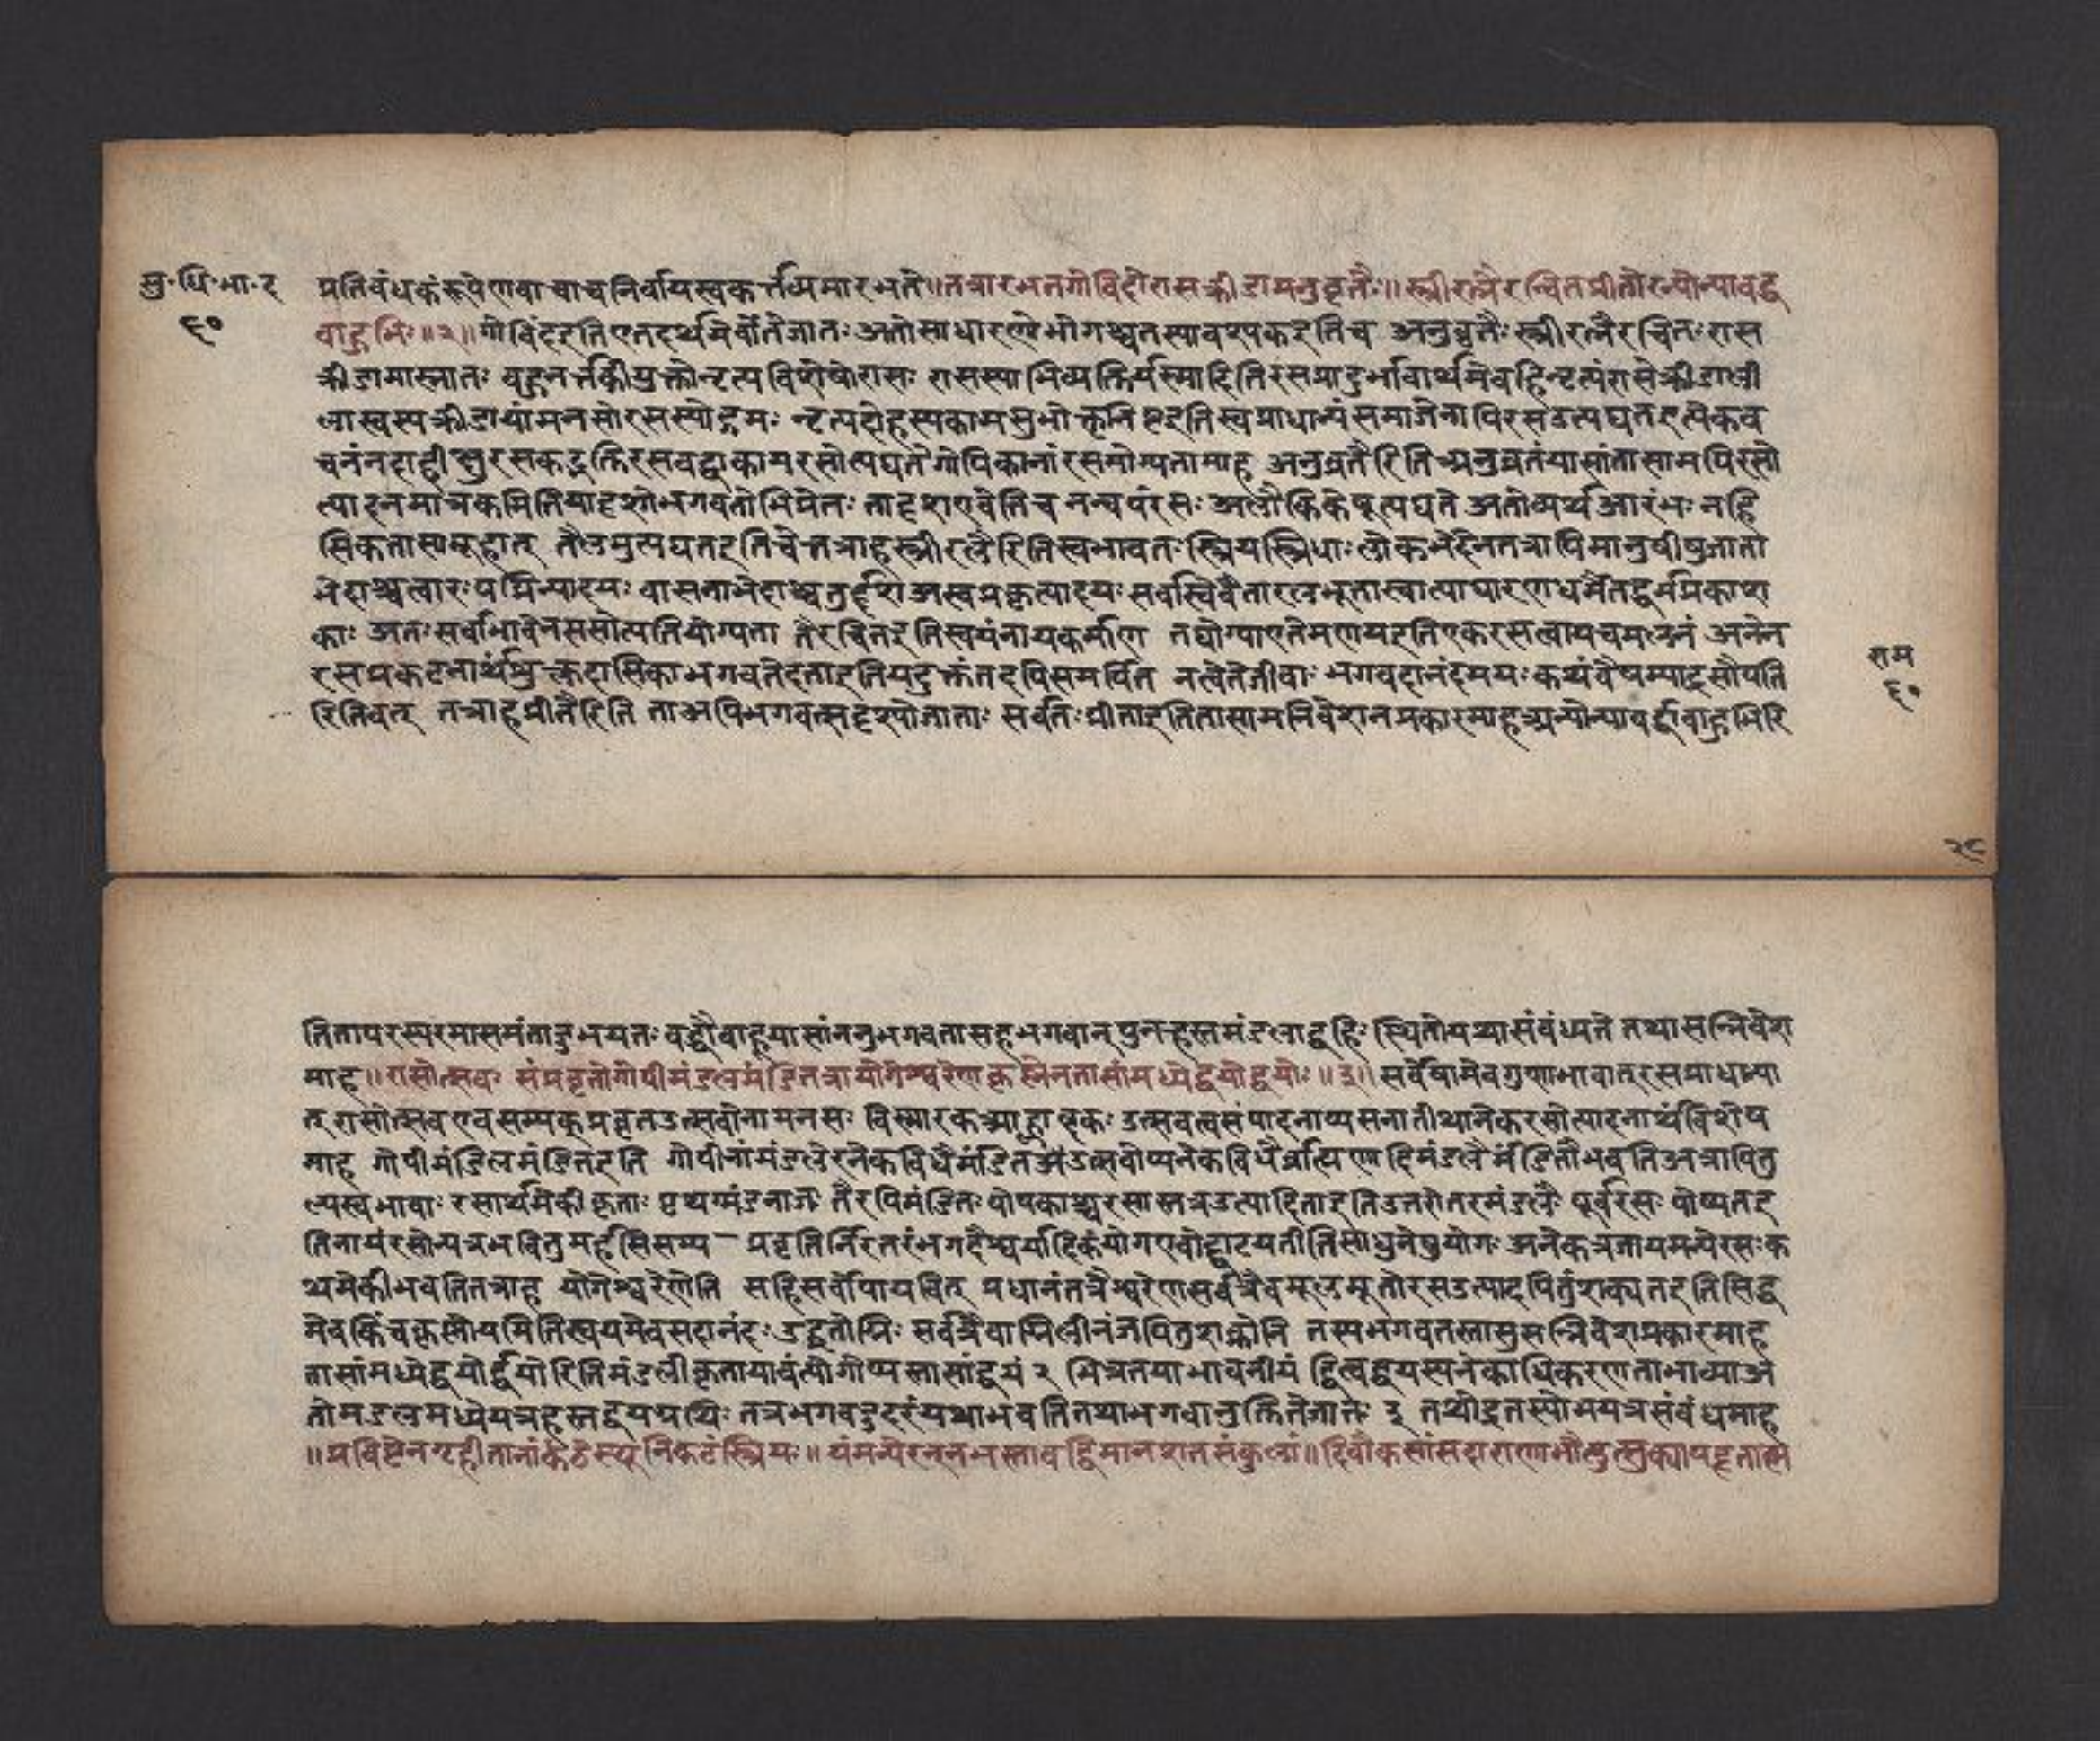 सु॰धि॰भा॰द
६०
प्रतिबंधकं रूपेणवाचाचनिर्वार्यस्वकर्त्तव्यमारभते॥तत्रारभतगोविंदोरासक्रीडामनुव्रतैः॥स्त्रीरत्नैरन्वितप्रीतोरन्योन्याबद्ध
बाहुभिः॥२॥गोविंदइतिएतदर्थमेवांतेजातः अतोसाधारणोभोगश्चतस्यावश्यकइतिच अनुव्रतैः स्त्रीरत्नैरचितःरास
क्रीडामास्नातः बहुनर्त्तकीयुक्तोनृत्यविशेषोरासः रासस्याभिव्यक्तिर्यस्मादितिरसप्रादुर्भावार्थमेवहिनृत्यंरासेक्रीडाखी
मनसोरसस्योद्गमः नृत्यदेहस्यकामसुभोक्तृनिष्टइतिस्वप्राधान्यंसमाजेनापिरसउत्पद्यतइत्येकव
चनंनहाहीक्षुरसकटुक्तिरसवद्वाकायरसोत्पद्यतेगोपिकानांरसयोग्यतामाह अनुव्रतैरितिअनुव्रतंयासांतासामपिरसो
त्पादनमात्रकमितियादृशोभगवतोभिप्रेतः तादृशएवेतिच नन्वयंरसः अलौकिकेषूत्पद्यते अतोव्यर्थआरंभः नहि
सिकतासमूहात् तैलमुत्पद्यतइतिचेत्तत्राहस्त्रीरत्नैरितिस्वभावतः स्त्रियस्त्रिधाः लोकभेदेनतत्रापिमानुषीषुजातो
भेदाश्चत्वारःपद्मिन्यादयः वासनाभेदाश्चतुर्दशअस्वप्रकृत्यादयः सर्वास्वेवैतारत्नभूतास्वात्याधारणधर्मैतद्धर्मप्रकाश
काः अतःसर्वाभावेनससोत्पतियोग्यता तैरचितइतिस्वयंनायकमणि तद्योग्याएतेमणयइतिएकरसत्वायचमलनं अनेन
रसप्रकटनार्थंमुक्तदासिकाभगवतेदताइतियदुक्तंतदपिसमर्पित नत्वेतेजीवाः भगवदानंदमयः कथंवैषम्याद्रसौपति
रितिवत् तत्राहप्रीतैरिति ताअपिभगवत्सदृश्योजाताः सर्वतःप्रीताइतितासामनिवेशनप्रकारमाहअन्योन्याबर्द्धबाहुभिरि
राम
६०
२८
तितापरस्परमासमंतादुभयतः बद्धौबाहूयासांननुभगवतासहभगवान् पुनर्हस्तमंडलाद्बहिः स्थितोयथासंबंध्यते तथासन्निवेश
माह॥रासोत्सवः संप्रवृतोगोपीमंडलमंडितत्रायोगेश्वरेणकृष्णेनतासांमध्येद्वयोद्वयोः॥३॥सर्वेषामेवगुणभावात्रसप्राधान्या
त् रासोत्सवएवसम्यक्प्रवृतउत्सवोनामनसः विस्मारकआह्लादकः उत्सवत्वसंपादनाप्यसनातीथानेकरसोत्पादनार्थंविशेष
माह गोपीमंडिलमंडितइति गोपीनांमंडलेरनेकविधैमंडितः
ल्यस्वभावाः रसार्थमेकीकृताः पृथग्मंडनाजः तैरपिमंडितः पोषकाश्चरसास्तत्रउत्पादिताइतिउत्तरोतरमंडलैः पूर्वरसः पोष्यतइ
तिनायंरसोन्यत्रभवितुमर्हसिसम्य – प्रवृतिर्निरंतरंभगदैश्वर्यादिकंयोगएवोद्घाटयतीतिसाधुनेषुयोगः अनेकत्रजायमन्येरसःक
थमेकीभवतितत्राह योगेश्वरेणेति सहिसर्वोपायवित् प्रधानंतत्रैश्वरेणसर्वत्रैवमूलभूतोरसउत्पादयितुंशक्यतइतिसिद्ध
मेवकिंचकृष्णोयमितिस्वयमेवसदानंदः उद्धृतोग्निः सर्वत्रैवाग्निलीनंजयितुशक्नोति तस्यभगवतस्तासुसन्निवेशप्रकारमाह
तासांमध्येद्वयोर्द्वयोरितिमंडलीकृतायावंत्योगोप्यस्तासांद्वयं २ मिश्रतयाभावनीयं द्वित्वद्वयस्यनेकाधिकरणताभाव्याअ
तोमडलमध्येयत्रहस्तद्वयग्रथिः तत्रभगवदुदरंयथाभवतितथाभगवानुक्तितेजातः ३ तथोद्रतस्योभयत्रसंबंधमाह
॥प्रविष्टेनगृहीतानांकंठेस्वनिकटंस्त्रियः॥यंमन्येरन्नभस्तावद्विमानशतसंकुलं॥दिवौकसांसदाराणामौत्सुक्यापहृतात्म